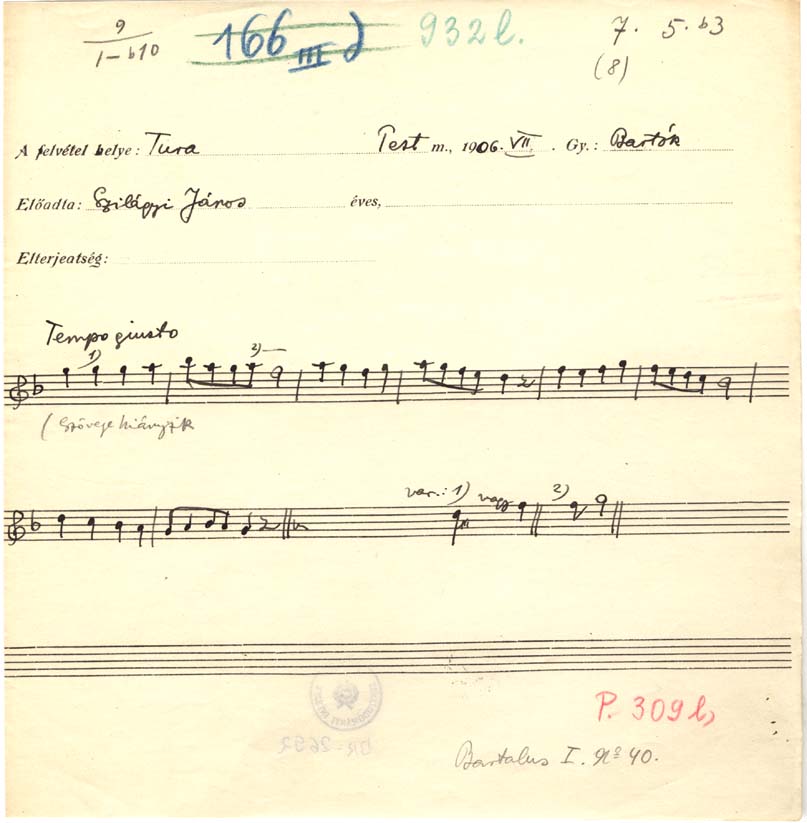 9 166 III d 932 l. 7. 5. b3
1–b10 (8)
A felvétel helye: Tura Pest m., 1906. VII. Gy.: Bartók
Előadta: Szilágyi János éves,
Elterjeatség:
Tempo giusto
1) 2)
(Szövege hiányzik
var.: 1) vagy 2)
P. 309 l,
BR-2652
Bartalus I. No 40.